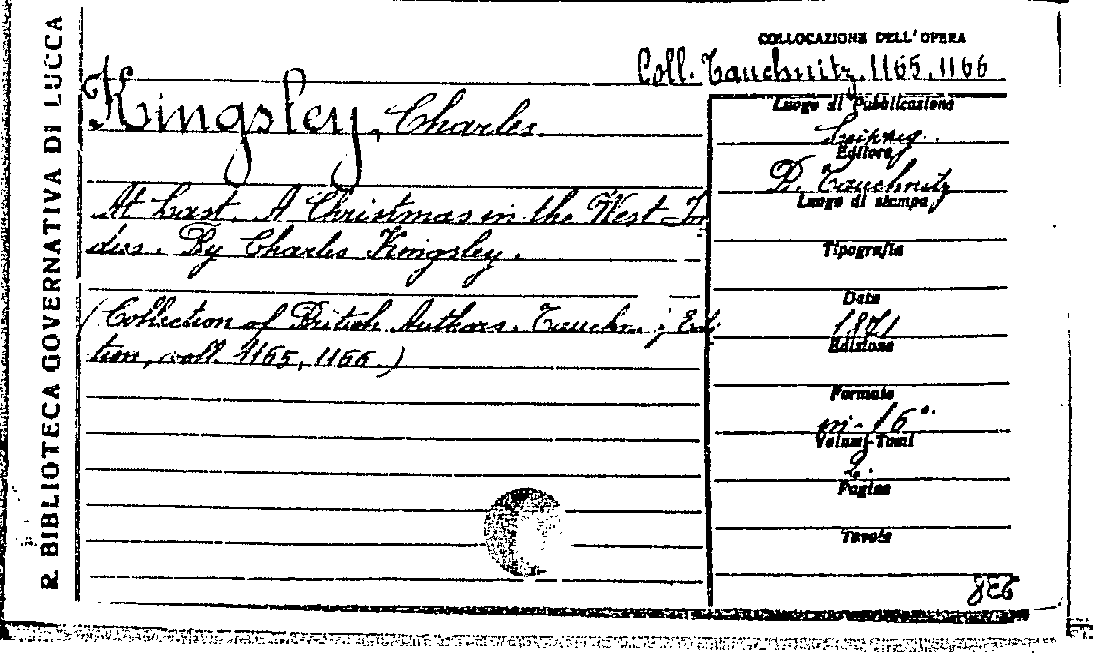 R. BIBLIOTECA GOVERNATIVA DI LUCCA
COLLOCAZIONE DELL'OPERA
Coll. Tauchnitz, 1165, 1166
Kingsley, Charles.
At Last. A Christmas in the West-In
dies. By Charles Kingsley.
(Collection of British Authors. Tauchn.; Edi
tion, voll. 1165, 1166.)
Luogo di Pubblicazione
Leipzig.
Editore
B. Tauchnitz
Luogo di stampa
Tipografia
Data
1871
Edizione
Formato
in-16°.
Volumi-Tomi
2.
Pagine
Tavole